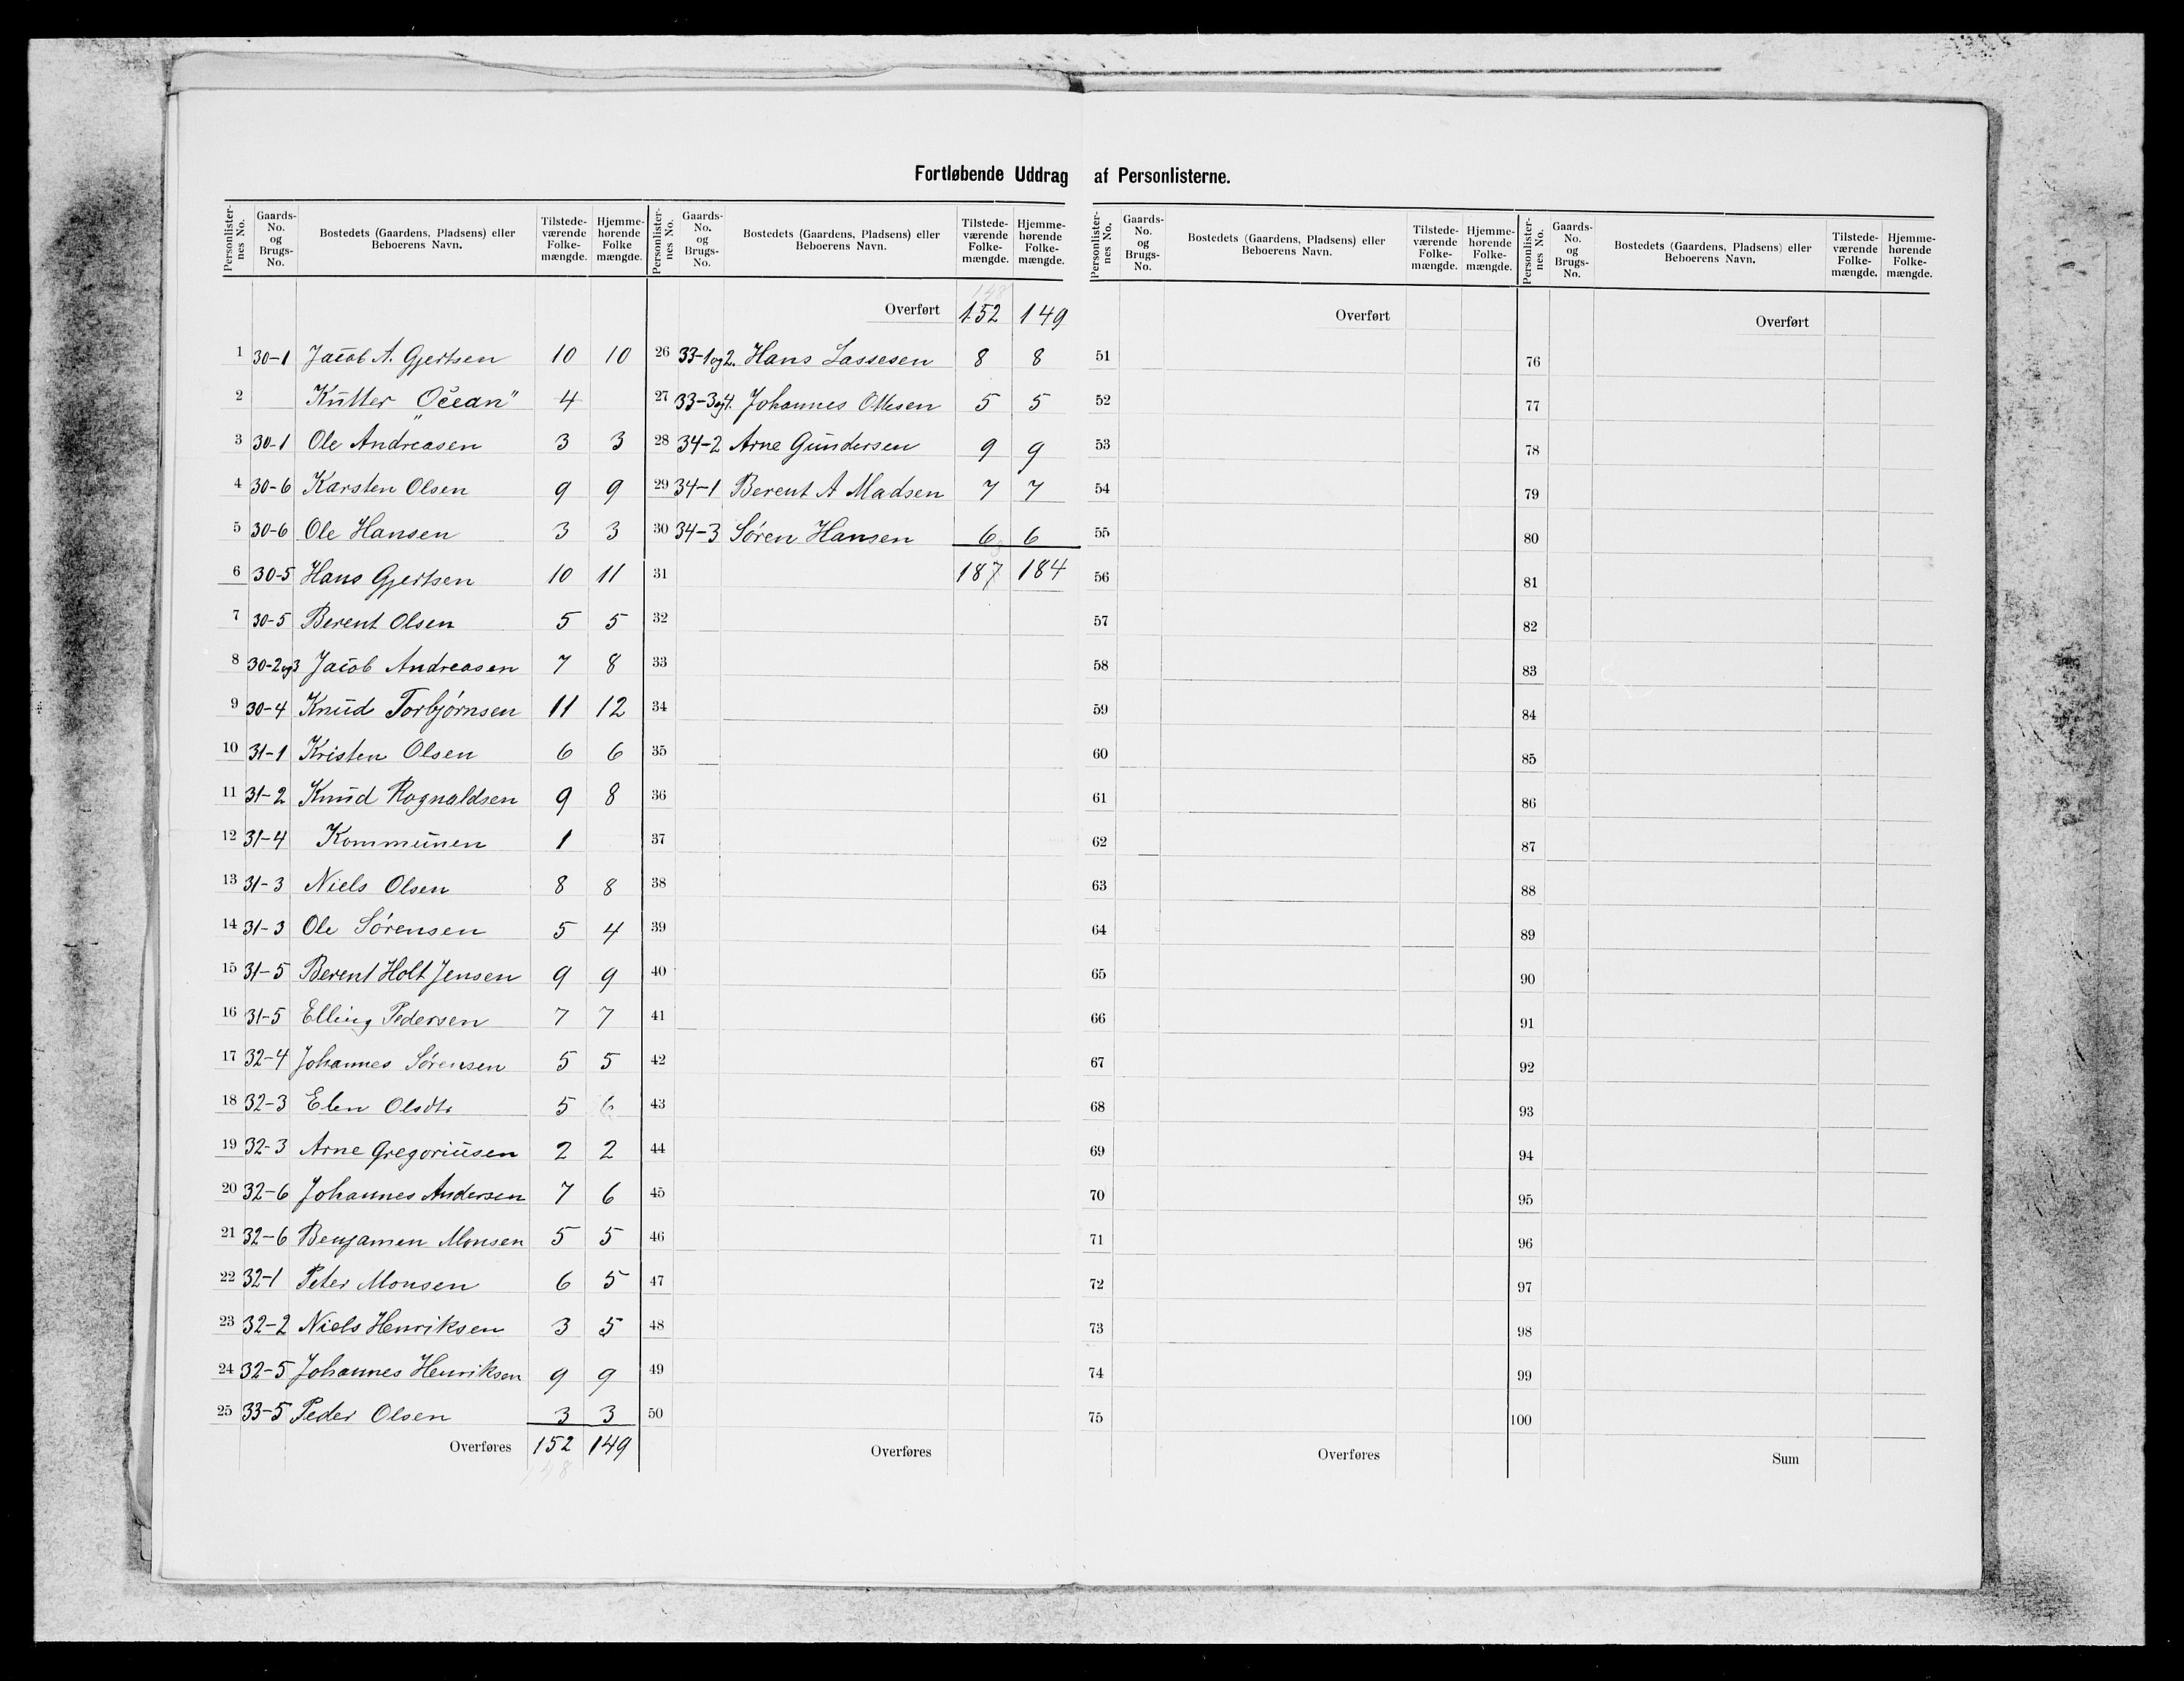 Fortløbende Uddrag af Personlisterne.
Personlister-nes No. | Gaards-No. og Brugs-No. | Bostedets (Gaardens, Pladsens) eller Beboerens Navn. | Tilstede-værende Folke-mængde. | Hjemme-hørende Folke mængde.
1 30-1 Jacob A. Gjertsen 10 10
2 Kutter „Ocean" 4
3 30-1 Ole Andreasen 3 3
4 30-6 Karsten Olsen 9 9
5 30-6 Ole Hansen 3 3
6 30-5 Hans Gjertsen 10 11
7 30-5 Berent Olsen 5 5
8 30-2og3 Jacob Andreasen 7 8
9 30-4 Knud Torbjørnsen 11 12
10 31-1 Kristen Olsen 6 6
11 31-2 Knud Ragnaldsen 9 8
12 31-4 Kommunen 1
13 31-3 Niels Olsen 8 8
14 31-3 Ole Sørensen 5 4
15 31-5 Berent Holt Jensen 9 9
16 31-5 Elling Pedersen 7 7
17 32-4 Johannes Sørensen 5 5
18 32-3 Elen Olsdtr 5 6
19 32-3 Arne Gregoriusen 2 2
20 32-6 Johannes Andersen 7 6
21 32-6 Benjamen Monsen 5 5
22 32-1 Peter Monsen 6 5
23 32-2 Niels Henriksen 3 5
24 32-5 Johannes Henriksen 9 9
25 33-5 Peder Olsen 3 3
Overføres 152 149
148
Personlister-nes No. | Gaards-No. og Brugs-No. | Bostedets (Gaardens, Pladsens) eller Beboerens Navn. | Tilstede-værende Folke-mængde. | Hjemme-hørende Folke-mængde.
148
Overført 152 149
26 33-1og2. Hans Lassesen 8 8
27 33-3og4. Johannes Ottesen 5 5
28 34-2 Arne Gundersen 9 9
29 34-1 Berent A Madsen 7 7
30 34-3 Søren Hansen 6 6
31 187 184
32
33
34
35
36
37
38
39
40
41
42
43
44
45
46
47
48
49
50
Overføres
Personlister-nes No. | Gaards-No. og Brugs-No. | Bostedets (Gaardens, Pladsens) eller Beboerens Navn. | Tilstede-værende Folke-mængde. | Hjemme-hørende Folke-mængde.
Overført
51
52
53
54
55
56
57
58
59
60
61
62
63
64
65
66
67
68
69
70
71
72
73
74
75
Overføres
Personlister-nes No. | Gaards-No. og Brugs-No. | Bostedets (Gaardens, Pladsens) eller Beboerens Navn. | Tilstede-værende Folke-mængde. | Hjemme-hørende Folke-mængde.
Overført
76
77
78
79
80
81
82
83
84
85
86
87
88
89
90
91
92
93
94
95
96
97
98
99
100
Sum